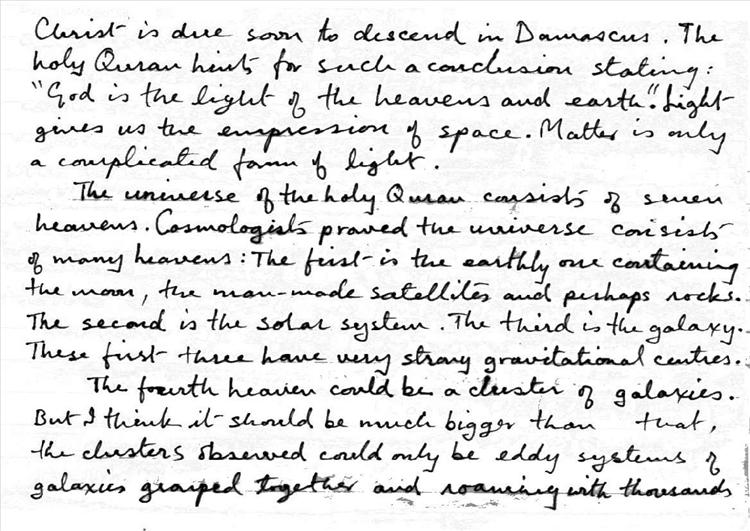 Christ is due soon to descend in Damascus. The
holy Quran hints for such a conclusion stating:
"God is the light of the heavens and earth". Light
gives us the empression of space. Matter is only
a complicated form of light.
The universe of the holy Quran consists of seven
heavens. Cosmologists proved the universe consists
of many heavens: The first is the earthly one containing
the moon, the man-made satellites and perhaps rocks.
The second is the solar system. The third is the galaxy.
These first three have very strong gravitational centres.
The fourth heaven could be a cluster of galaxies.
But I think it should be much bigger than that,
the clusters observed could only be eddy systems of
galaxies grouped together and roaming with thousands